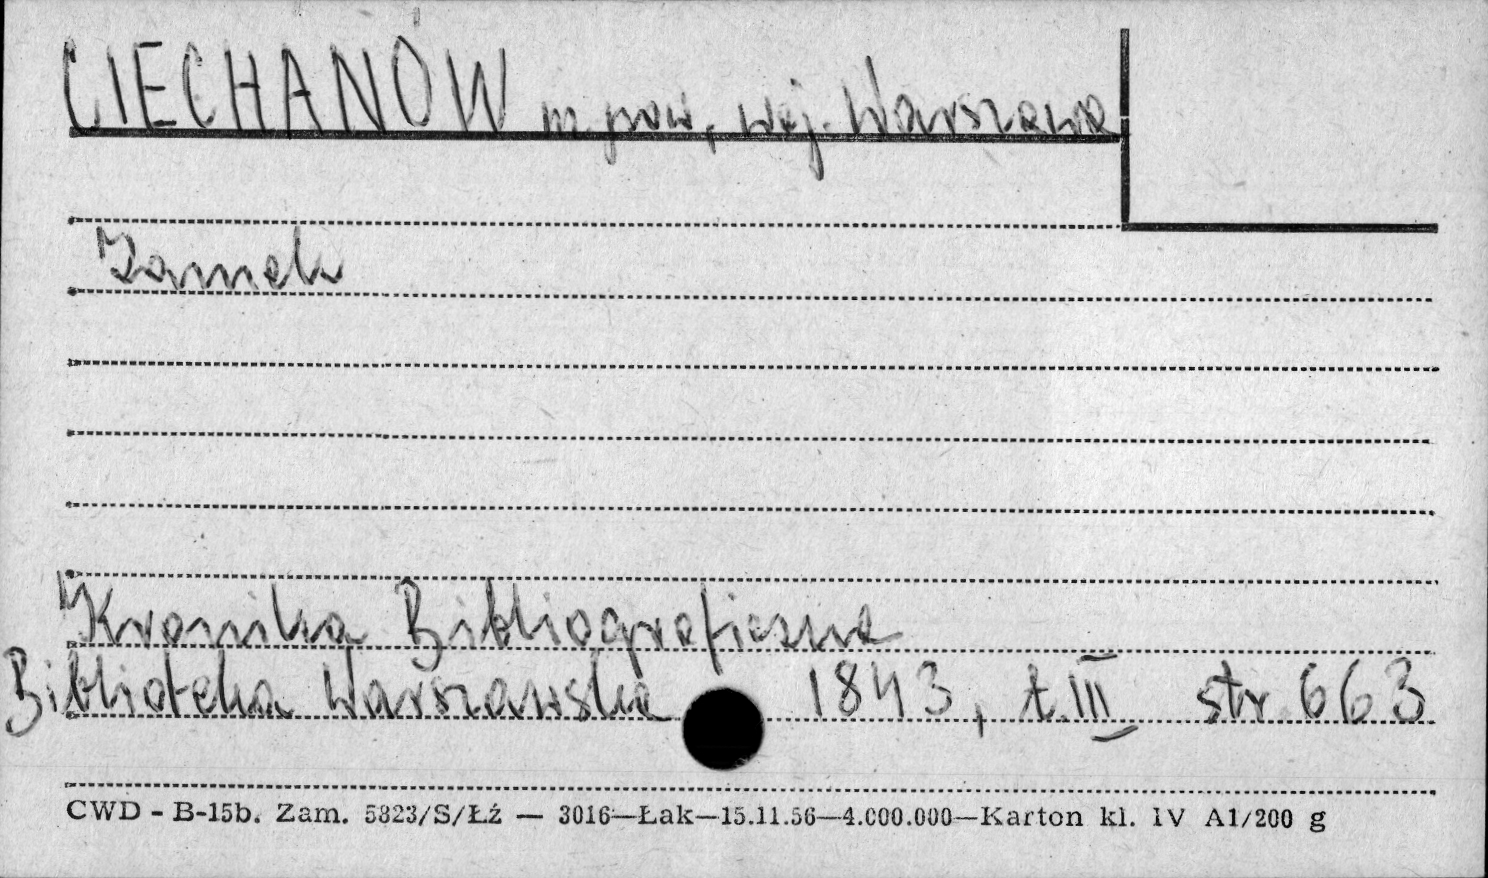 CIECHANÓW m. pow., woj. Warszawa
Zamek
Kronika Bibliograficzna
Biblioteka Warszawska 1843, t. III str 663
CWD - B-15b. Zam. 5823/S/Łź — 3016—Łak—15.11.56—4.000.000—Karton kl. IV A1/200 g